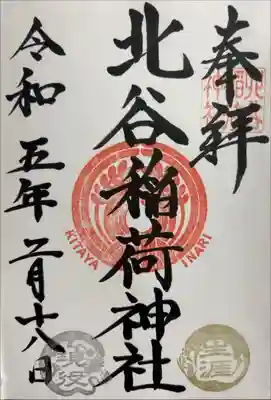 奉拝
北谷稲荷神社
KITAYA INARI
令和五年二月十八日